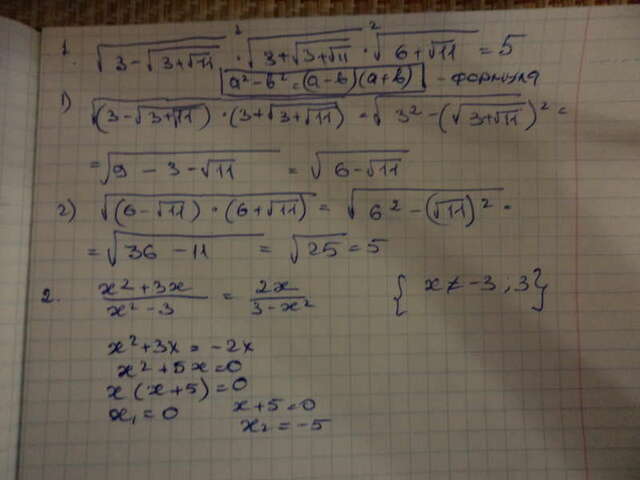 1. √(3-√(3+√11)) ·² √(3+√(3+√11)) ·² √(6+√11) = 5
a²-b²=(a-b)(a+b) - формула
1) √((3-√(3+√11))·(3+√(3+√11))) = √(3²-(√(3+√11))²) =
= √(9-3-√11) = √(6-√11)
2) √((6-√11)·(6+√11)) = √(6²-(√11)²) =
= √(36-11) = √25 = 5
2. (x²+3x)/(x²-3) = 2x/(3-x²) { x≠-3; 3}
x²+3x = -2x
x²+5x=0
x(x+5)=0
x₁=0 x+5=0
x₂=-5